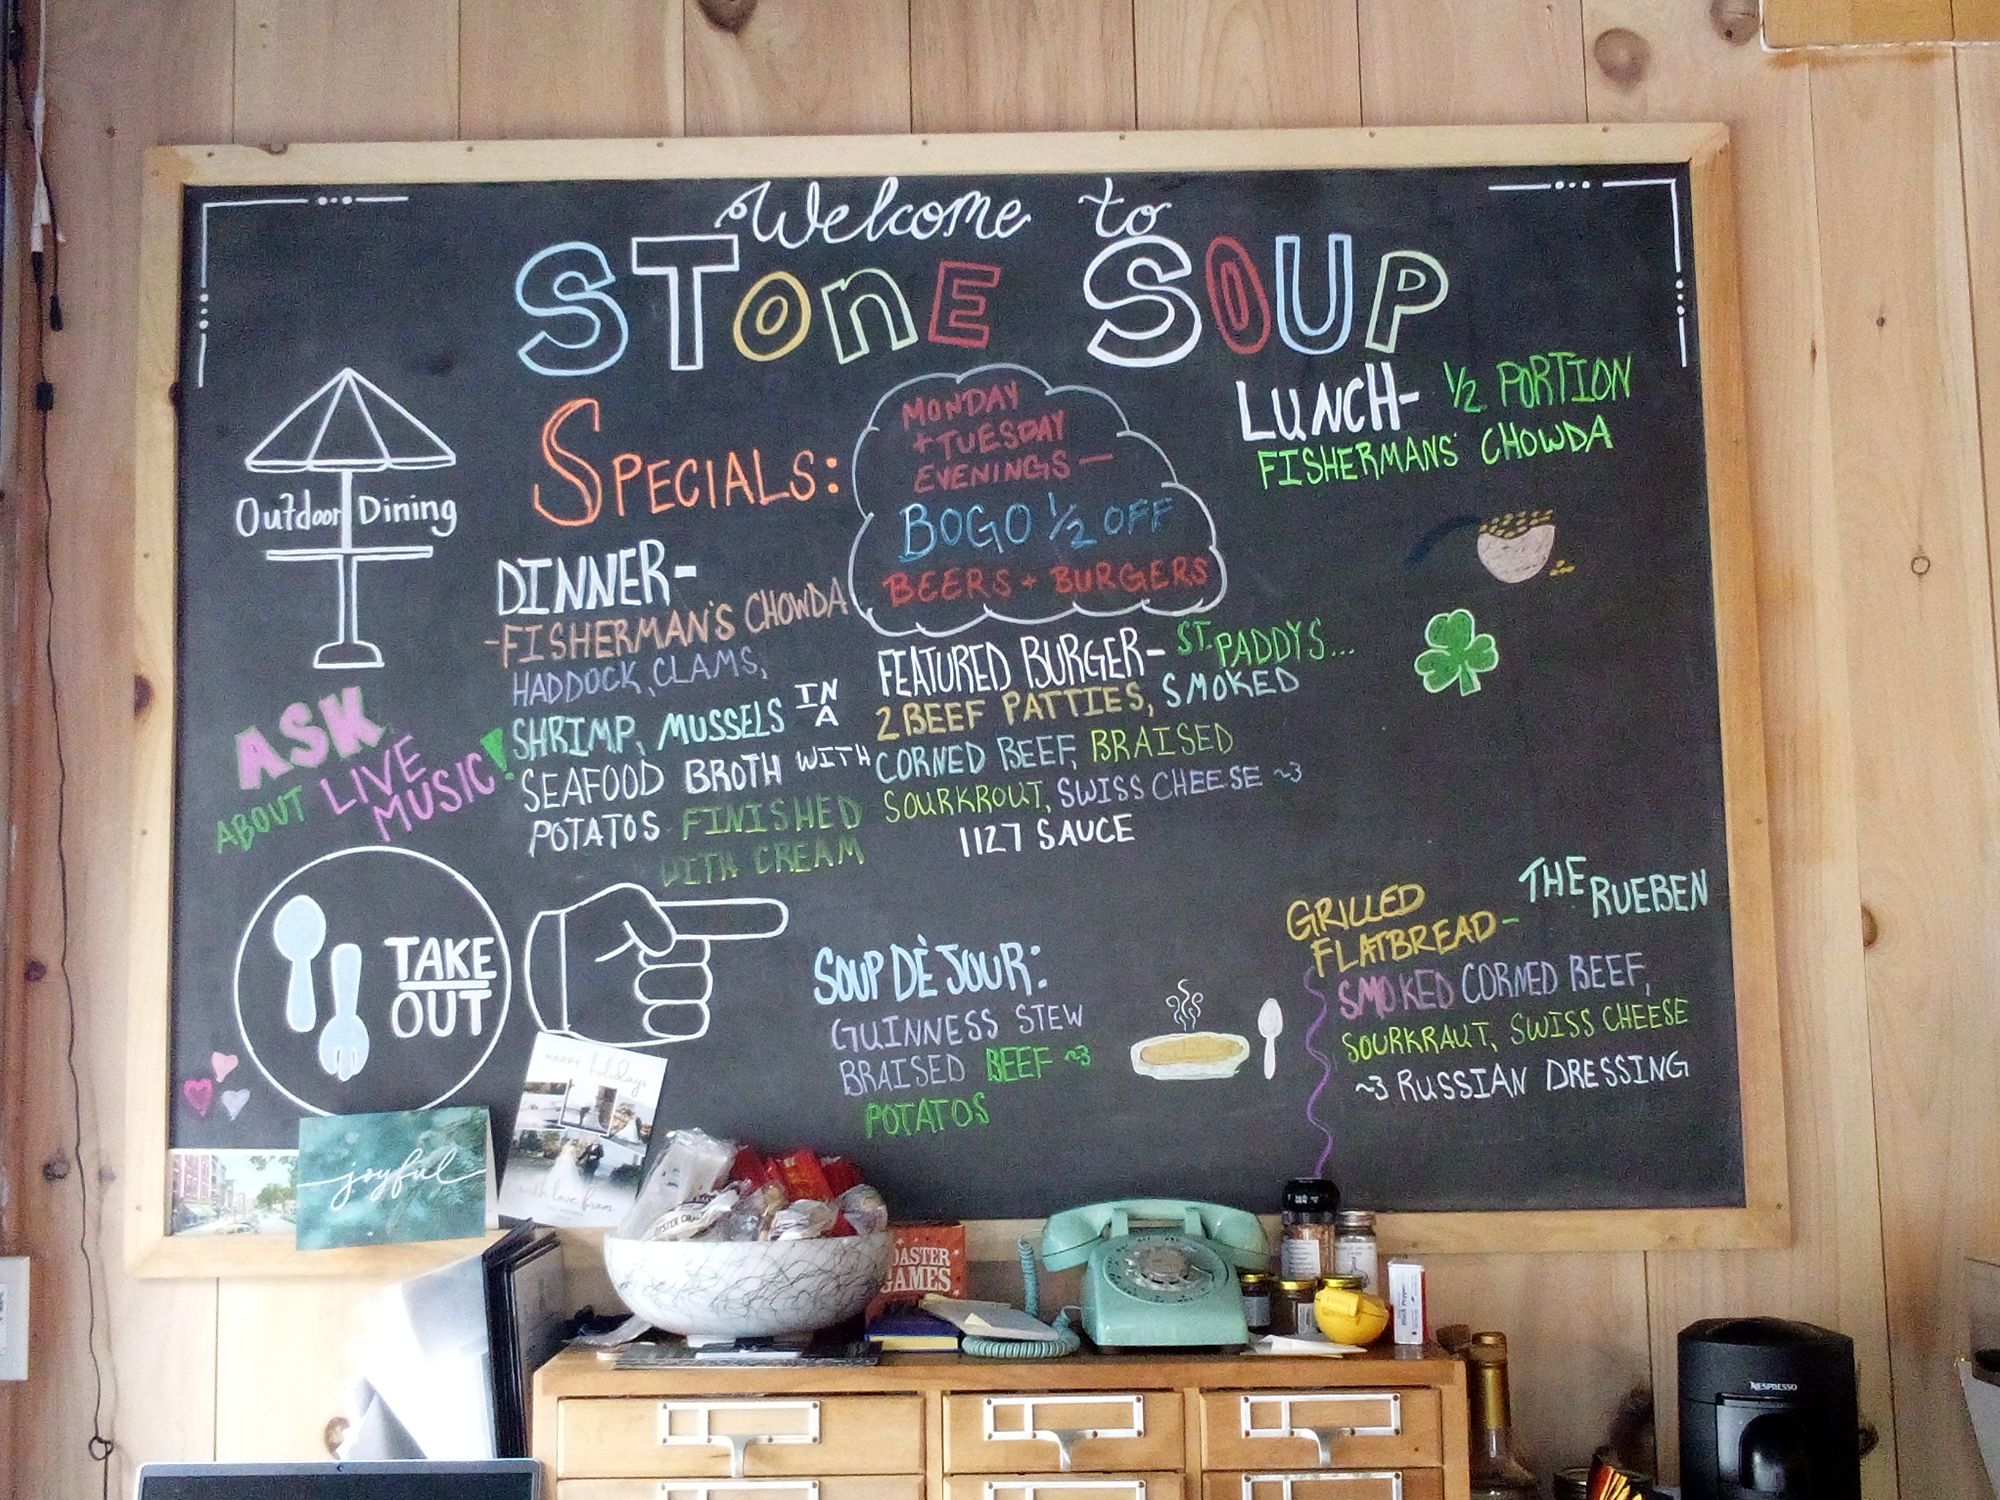 Welcome to
STONE SOUP
Outdoor Dining
SPECIALS:
MONDAY
+ TUESDAY
EVENINGS —
BOGO 1/2 OFF
BEERS + BURGERS
LUNCH- 1/2 PORTION
FISHERMANS' CHOWDA
DINNER-
-FISHERMAN'S CHOWDA
HADDOCK, CLAMS,
SHRIMP, MUSSELS IN A
SEAFOOD BROTH WITH
POTATOS FINISHED
WITH CREAM
FEATURED BURGER- ST. PADDYS...
2 BEEF PATTIES, SMOKED
CORNED BEEF, BRAISED
SOURKROUT, SWISS CHEESE ~3
1127 SAUCE
ASK
ABOUT LIVE
MUSIC!
TAKE
OUT
SOUP DÈ JOUR:
GUINNESS STEW
BRAISED BEEF ~3
POTATOS
GRILLED
FLATBREAD- THE RUEBEN
SMOKED CORNED BEEF,
SOURKRAUT, SWISS CHEESE
~3 RUSSIAN DRESSING
HAPPY holidays
with love from
joyful
OASTER
GAMES
NESPRESSO